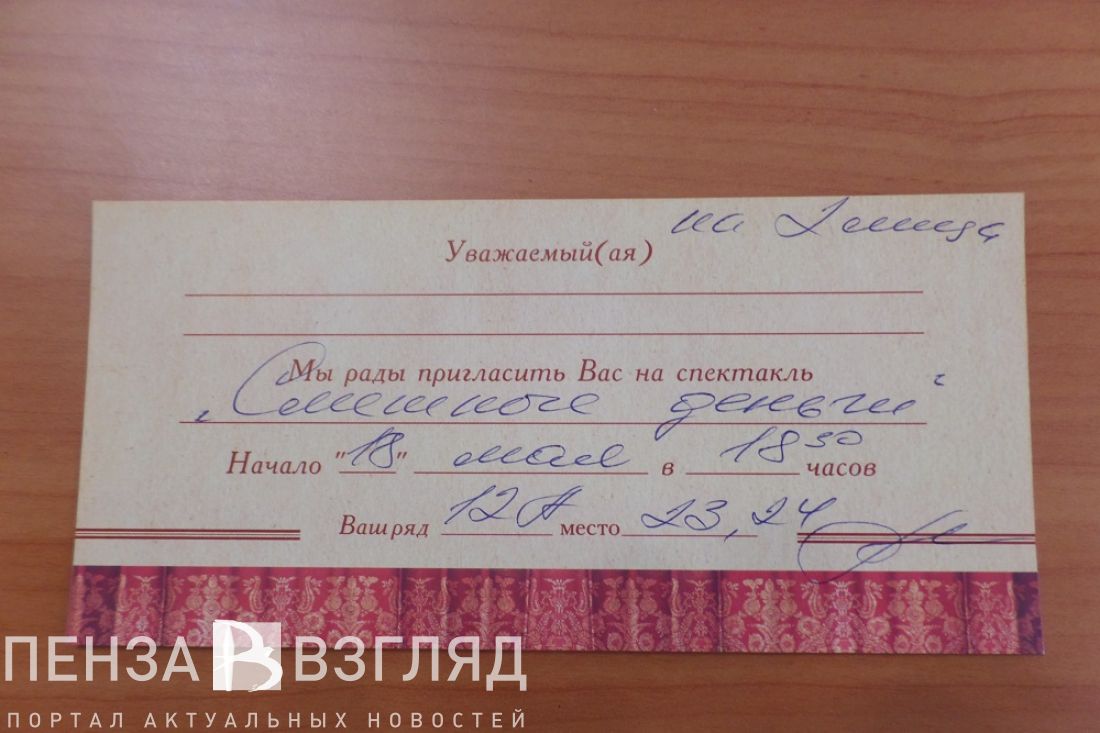 на 2 лица
Уважаемый(ая)
Мы рады пригласить Вас на спектакль
„Смешные деньги“
Начало "18" мая в 18 30 часов
Ваш ряд 12 А место 23, 24
ПЕНЗА В ВЗГЛЯД
ПОРТАЛ АКТУАЛЬНЫХ НОВОСТЕЙ